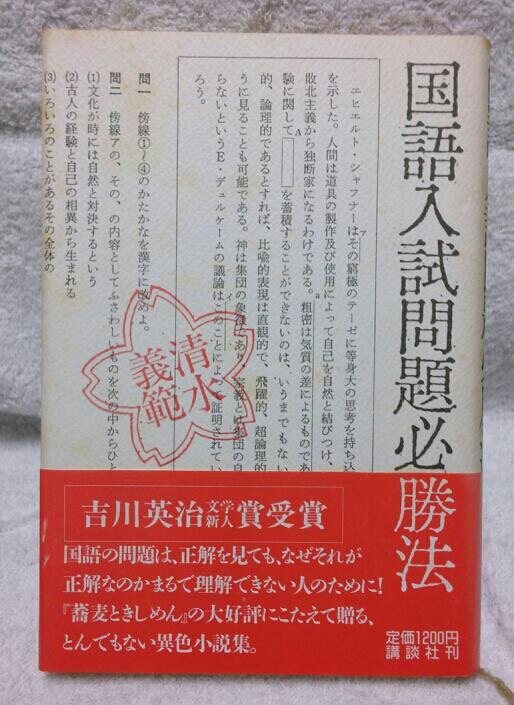 国語入試問題必勝法
エヒエルト・シャフナーはその窮極のテーゼに等身大の思考を持ち込
を示した。人間は道具の製作及び使用によって自己を自然と結びつけ、
敗北主義から独断家になるわけである。粗密は気質の差によるものであ
験に関して
を蓄積することができないのは、いうまでもない
的、論理的であるとすれば、比喩的表現は直観的で、飛躍的、超論理的
うに見ることも可能である。神は集団の象徴であり、宗教とは集団の自
らないというE・デュルケームの議論はこのことによって証明されてい
ろう。
ア
A
a
イ
問一 傍線①~④のかたかなを漢字に改めよ。
問二 傍線アの、その、の内容としてふさわしいものを次の中からひと
(1)文化が時には自然と対決するという
(2)古人の経験と自己の相異から生まれる
(3)いろいろのことがあるその全体の
清水
義範
吉川英治文学新人賞受賞
国語の問題は、正解を見ても、なぜそれが
正解なのかまるで理解できない人のために!
『蕎麦ときしめん』の大好評にこたえて贈る、
とんでもない異色小説集。
定価1200円
講談社刊